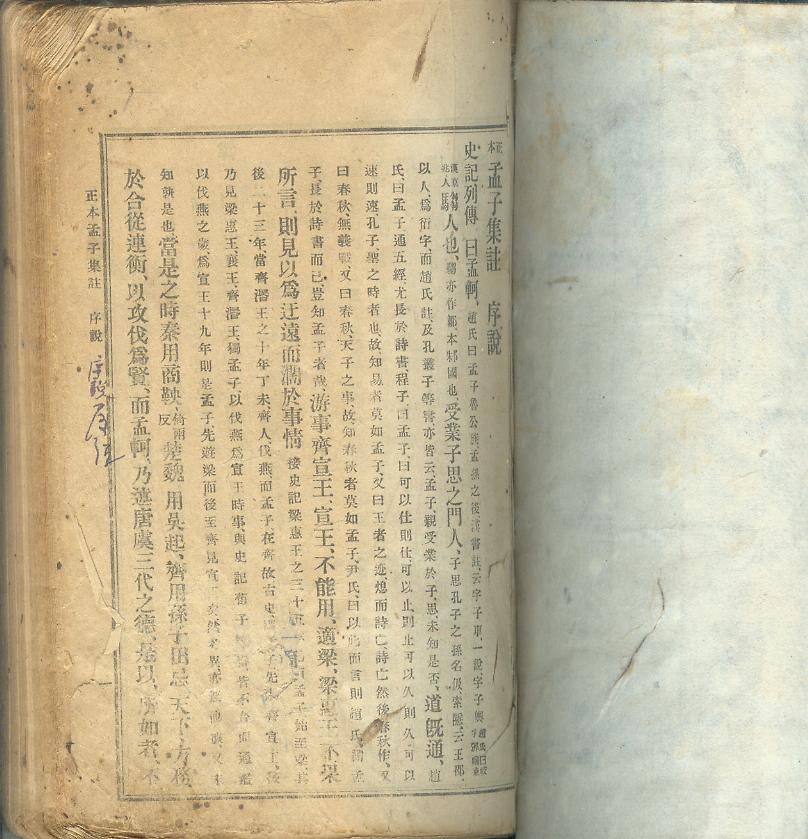 正本 孟子集註 序說
史記列傳 曰孟軻、趙氏曰孟子魯公族孟孫之後漢書註云字子車一說字子輿
人也、騶亦作鄒本邾國也、受業子思之門人、子思孔子之孫名伋索隱云王邵
以人爲衍字、而趙氏註及孔叢子等書亦皆云孟子親受業於子思、未知是否、道旣通、趙
氏曰孟子通五經尤長於詩書、程子曰孟子曰可以仕則仕、可以止則止可以久則久可以
速則速、孔子聖之時者也、故知易者莫如孟子、又曰王者之迹熄而詩亡、詩亡然後春秋作、又
曰春秋、無義戰又曰春秋、天子之事、故知春秋者莫如孟子、尹氏曰以此而言則趙氏謂孟
子、長於詩書而已豈知孟子者哉、游事齊宣王、宣王、不能用、適梁、梁惠王不果
所言、則見以爲迂遠而濶於事情 按史記梁惠王之三十五年孟子始至梁其
後二十三年、當齊湣王之十年丁未、齊人伐燕而孟子、在齊故古史謂孟子先事齊宣王、後
乃見梁惠王襄王、齊湣王、獨孟子以伐燕爲宣王時事、與史記荀子等書皆不合而通鑑
以伐燕之歲爲宣王十九年則是孟子、先遊梁而後至齊見宣王矣然考異亦無他據又未
知孰是也、當是之時秦用商鞅、倚兩反 楚魏用吳起、齊用孫子田忌天下、方務
於合從連衡、以攻伐爲賢、而孟軻、乃述唐虞三代之德、是以、所如者、不
正本孟子集註 序說